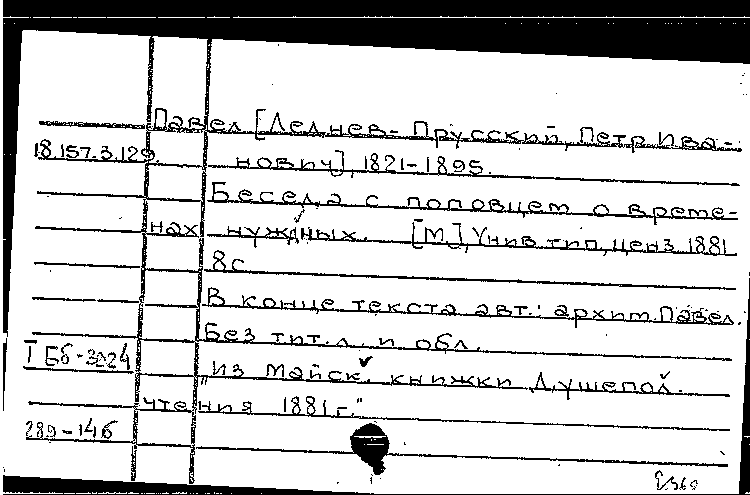 Павел [Леднев-Прусский, Петр Ива-
18.157.3.129. нович], 1821-1895.
Беседа с поповцем о време-
нах нуждных. [М.], Унив. тип, ценз. 1881
8с
В конце текста авт.: архим. Павел.
Без тит. л. и обл.
I Бб-3224
"Из Майск. книжки Душепол.
чтения 1881 г."
289-14б